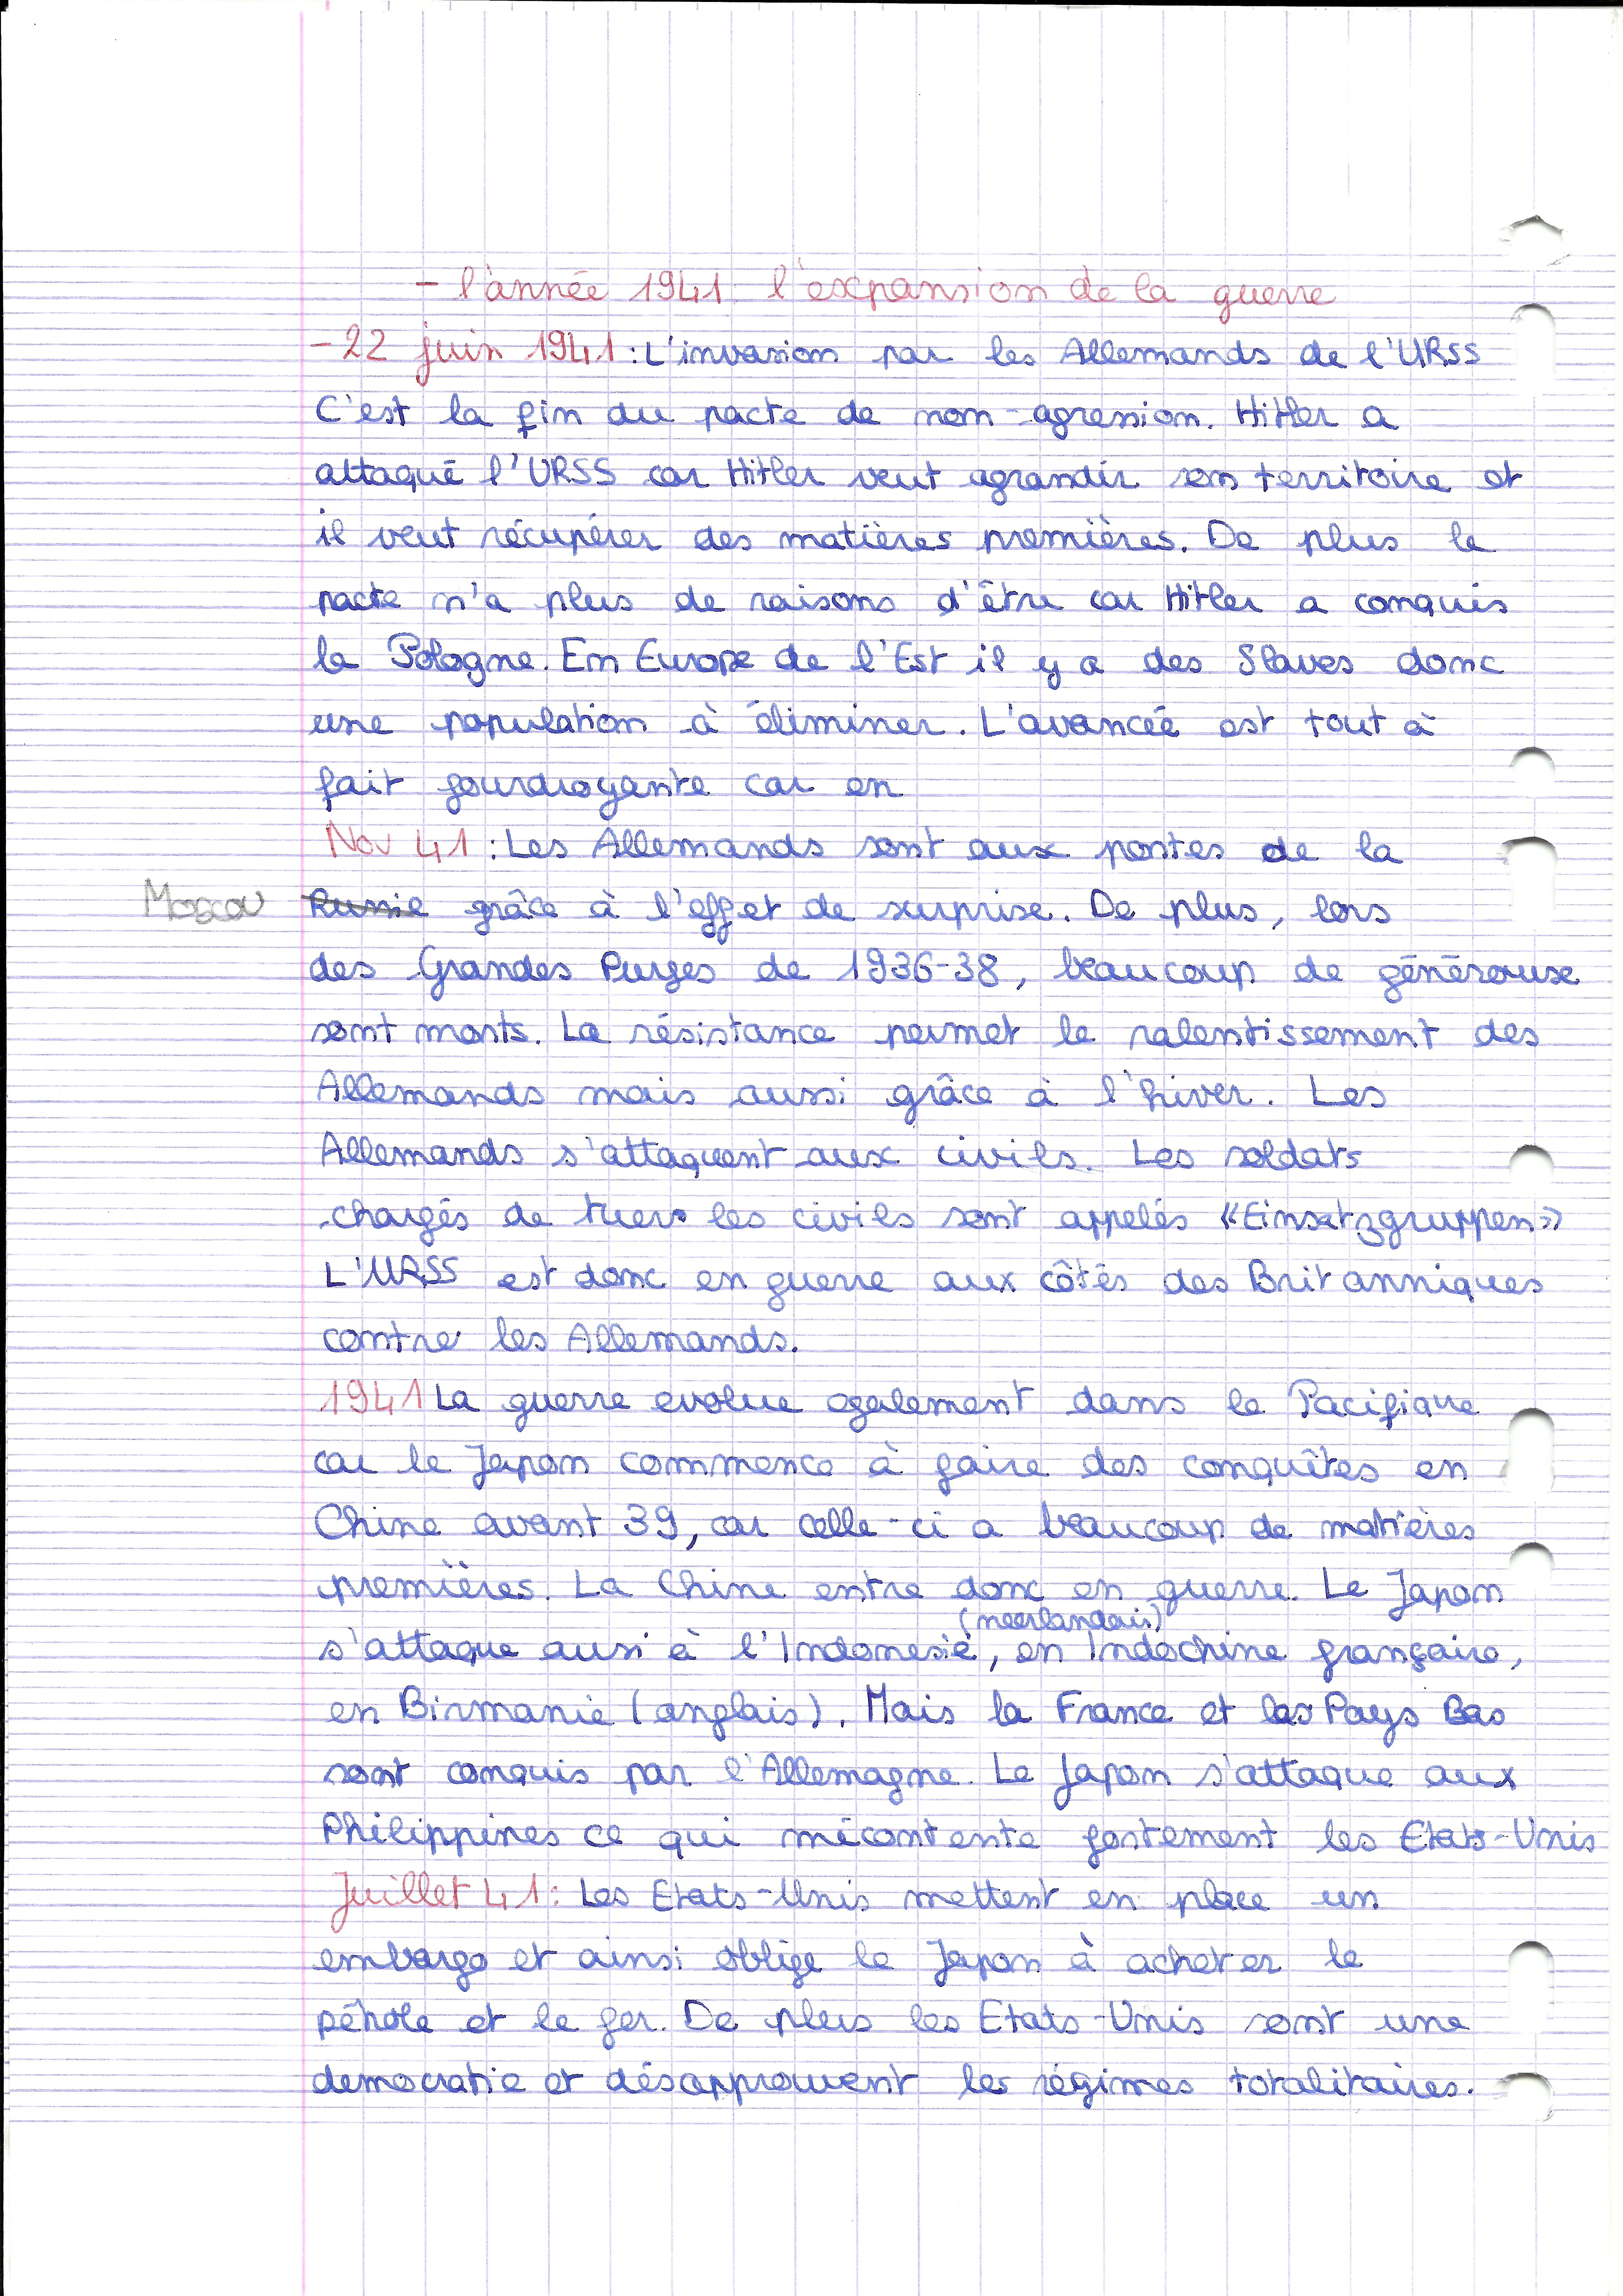 - l'année 1941 l'expansion de la guerre
- 22 juin 1941 : L'invasion par les Allemands de l'URSS
C'est la fin du pacte de non-agression. Hitler a
attaqué l'URSS car Hitler veut agrandir son territoire et
il veut récupérer des matières premières. De plus le
pacte n'a plus de raisons d'être car Hitler a conquis
la Pologne. En Europe de l'Est il y a des Slaves donc
une population à éliminer. L'avancée est tout à
fait fourdroyante car en
Nov 41 : Les Allemands sont aux portes de la
Moscou Russie grâce à l'effet de surprise. De plus, lors
des Grandes Purges de 1936-38, beaucoup de généraux
sont morts. La résistance permet le ralentissement des
Allemands mais aussi grâce à l'hiver. Les
Allemands s'attaquent aux civils. Les soldats
chargés de tuers les civils sont appelés «Einsatzgruppen»
L'URSS est donc en guerre aux côtés des Britanniques
contre les Allemands.
1941 La guerre evolue egalement dans le Pacifique
car le Japon commence à faire des conquêtes en
Chine avant 39, car celle-ci a beaucoup de matières
premières. La Chine entre donc en guerre. Le Japon
(neerlandais)
s'attaque aussi à l'Indonesie, en Indochine française,
en Birmanie (anglais). Mais la France et les Pays Bas
sont conquis par l'Allemagne. Le Japon s'attaque aux
Philippines ce qui mécontente fortement les Etats-Unis
Juillet 41 : Les Etats-Unis mettent en place un
embargo et ainsi oblige le Japon à acheter le
pétrole et le fer. De plus les Etats-Unis sont une
democratie et désapprouvent les régimes totalitaires.